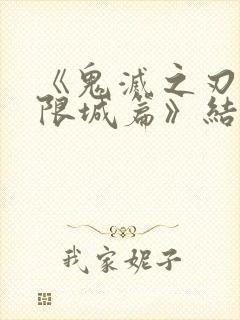 《鬼滅之刃
限城篇》結
我家妮子